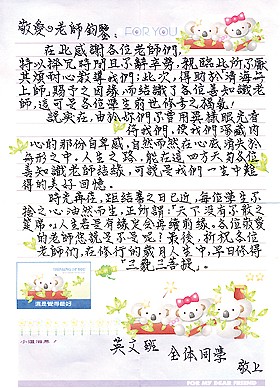 敬愛的老師鈞鑒:
FOR YOU
在此感謝各位老師們,
特以撥冗時間且了解辛勞,親臨此所了解
其煩耐心教導我們;此次,得助於清海無
上師賜予之因緣,而結識了各位善知識老
師,這可是各位學生前世修來之福氣!
說實在,由於妳們了曾用異樣眼光看
待我們,使我們深感內
心的那份自卑感,自然而然在心底消失於
無形之中,人生之路,能在這四方天勾各位
善知識老師結緣,可說是我們一生中難
得的美好回憶。
時光再荏,距結業之日已近,每位學生不
捨之心油然而生,正所謂:「天下沒有不散之
筵席」,人生若是有緣定會再續前緣,各位敬愛
的老師您說是不是呢?最後,祈祝各位
老師們,在修行的歲月人生中,早日修得
三藐三菩提。
英文班
全体同學
敬上
FOR MY DEAR FRIEND